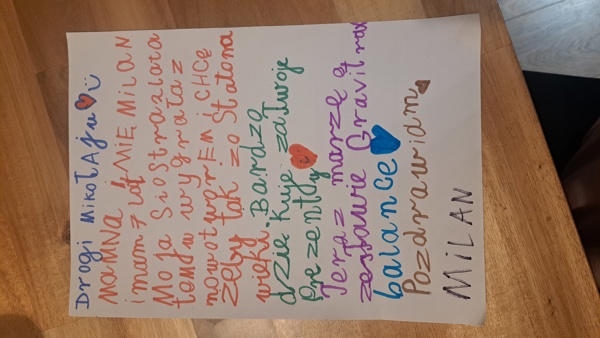 Drogi MikołAju
MAMNA iMiĘ MiLAN
i mam 7 lat
Moja Siostra 2 lata
temu wygrała z
nowotworEm i CHCĘ
żeby tak zo Stałona
wieki. Bardzo
dzię kuje za Twoje
Prezenty
Teraz marzę o
zestawie Gravitrax
balance
Pozdrawiam
MiLAN